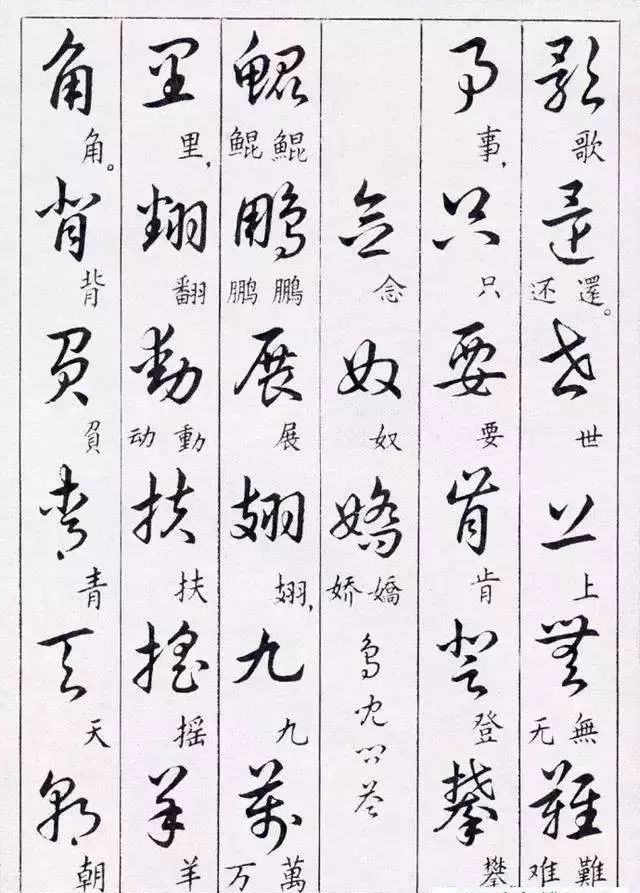 歌還世上無難
歌還还。世上無无難难
事只要肯登攀
事，只要肯登攀
念奴嬌 鳥兒问答
念奴嬌娇
鯤鵬展翅九萬
鯤鲲鵬鹏展翅，九萬万
里翻動扶搖羊
里，翻動动扶摇羊
角背負青天朝
角。背負青天朝